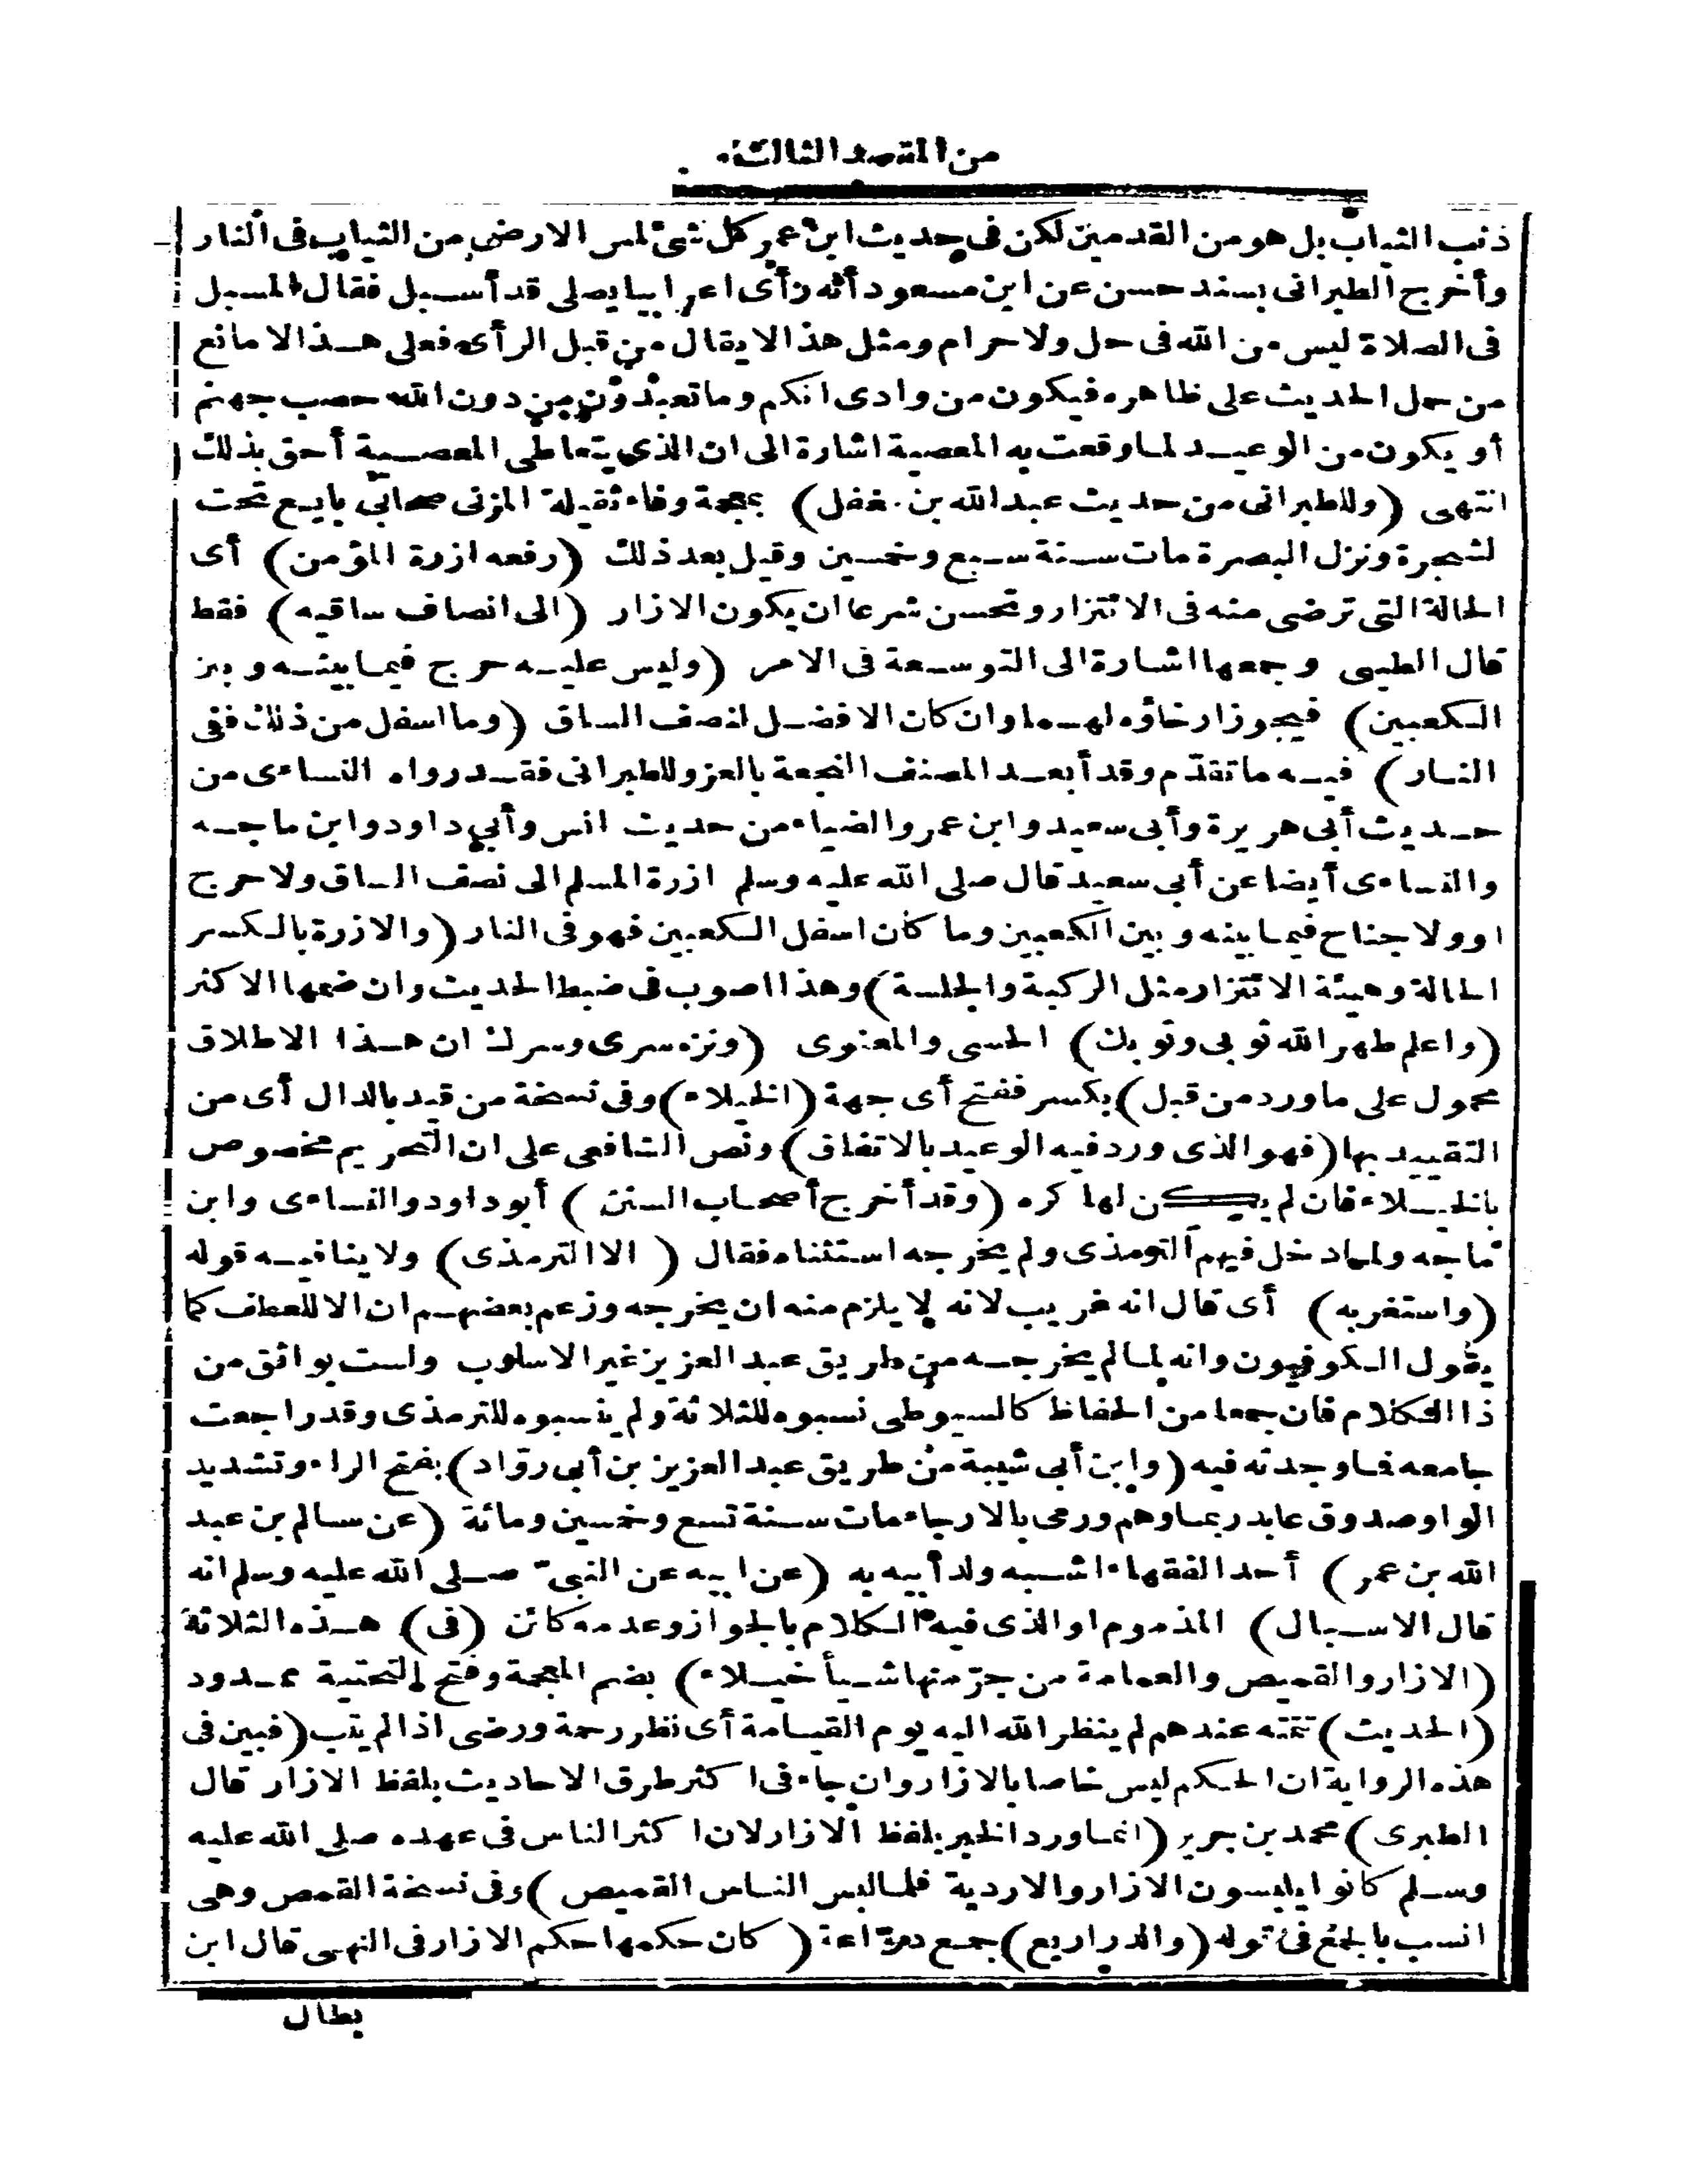 من المقصد الثالث
ذنب الثياب بل هو من القدمين لكن فى حديث ابن عمر كل شئ لمس الارض من الثياب فى النار
وأخرج الطبرانى بسند حسن عن ابن مسعود أنه رأى اعرابيا يصلى قد أسبل فقال المسبل
فى الصلاة ليس من الله فى حل ولا حرام ومثل هذا لا يقال من قبل الرأى فعلى هذا لا مانع
من حمل الحديث على ظاهره فيكون من وادى انكم وما تعبدون من دون الله حصب جهنم
أو يكون من الوعيد لما وقعت به المعصية اشارة الى ان الذى يتعاطى المعصية أحق بذلك
انتهى (وللطبرانى من حديث عبد الله بن مغفل) بمعجمة وفاء ثقيلة المزنى صحابى بايع تحت
لشجرة ونزل البصرة مات سنة سبع وخمسين وقيل بعد ذلك (رفعه ازرة المؤمن) أى
الحالة التى ترضى منه فى الائتزار وتحسن شرعا ان يكون الازار (الى انصاف ساقيه) فقط
قال الطيبى وجمعها اشارة الى التوسعة فى الامر (وليس عليه حرج فيما بينه وبين
الكعبين) فيجوز ارخاؤه لهما وان كان الافضل لنصف الساق (وما اسفل من ذلك ففى
النار) فيه ما تقدم وقد أبعد المصنف النجعة بالعزو للطبرانى فقد رواه النساءى من
حديث أبى هريرة وأبى سعيد وابن عمر والضياء من حديث انس وأبى داود وابن ماجه
والنساءى أيضا عن أبى سعيد قال صلى الله عليه وسلم ازرة المسلم الى نصف الساق ولا حرج
اوولا جناح فيما بينه وبين الكعبين وما كان اسفل الكعبين فهو فى النار (والازرة بالكسر
الحالة وهيئة الائتزار مثل الركبة والجلسة) وهذا اصوب فى ضبط الحديث وان ضمها الاكثر
(واعلم طهر الله ثوبى وثوبك) الحسى والمعنوى (ونزه سرى وسرك ان هذا الاطلاق
محمول على ما ورد من قبل) بكسر ففتح أى جهة (الخيلاء) وفى نسخة من قيد بالدال أى من
التقييد بها (فهو الذى ورد فيه الوعيد بالاتفاق) ونص الشافعى على ان التحريم مخصوص
بالخيلاء فان لم يكن لها كره (وقد أخرج أصحاب السنن) أبو داود والنساءى وابن
ماجه ولما دخل فيهم الترمذى ولم يخرجه استثناه فقال (الا الترمذى) ولا ينافيه قوله
(واستغربه) أى قال انه غريب لانه لا يلزم منه ان يخرجه وزعم بعضهم ان الا للعطف كما
يقول الكوفيون وانه لما لم يخرجه من طريق عبد العزيز غير الاسلوب ولست بواثق من
ذا الكلام فان جمعا من الحفاظ كالسيوطى نسبوه للثلاثة ولم ينسبوه للترمذى وقد راجعت
جامعه فما وجدته فيه (وابن أبى شيبة من طريق عبد العزيز بن أبى روّاد) بفتح الراء وتشديد
الواو صدوق عابد ربما وهم ورمى بالارجاء مات سنة تسع وخمسين ومائة (عن سالم بن عبد
الله بن عمر) أحد الفقهاء اشبه ولد أبيه به (عن ابيه عن النبىّ صلى الله عليه وسلم انه
قال الاسبال) المذموم او الذى فيه الكلام بالجواز وعدمه كائن (فى) هذه الثلاثة
(الازار والقميص والعمامة من جرّ منها شيأ خيلاء) بضم المعجمة وفتح التحتية ممدود
(الحديث) تتمته عندهم لم ينظر الله اليه يوم القيامة أى نظر رحمة ورضى اذا لم يتب (فبين فى
هذه الرواية ان الحكم ليس خاصا بالازار وان جاء فى اكثر طرق الاحاديث بلفظ الازار قال
الطبرى) محمد بن جرير (انما ورد الخبر بلفظ الازار لان اكثر الناس فى عهده صلى الله عليه
وسلم كانوا يلبسون الازار والاردية فلما لبس الناس القميص) وفى نسخة القمص وهى
انسب بالجمع فى قوله (والدراريع) جمع درّاعة (كان حكمها حكم الازار فى النهى قال ابن
بطال